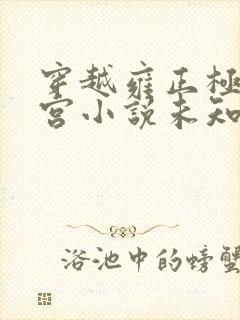 穿越雍正极
宫小说未知
浴池中的螃蟹